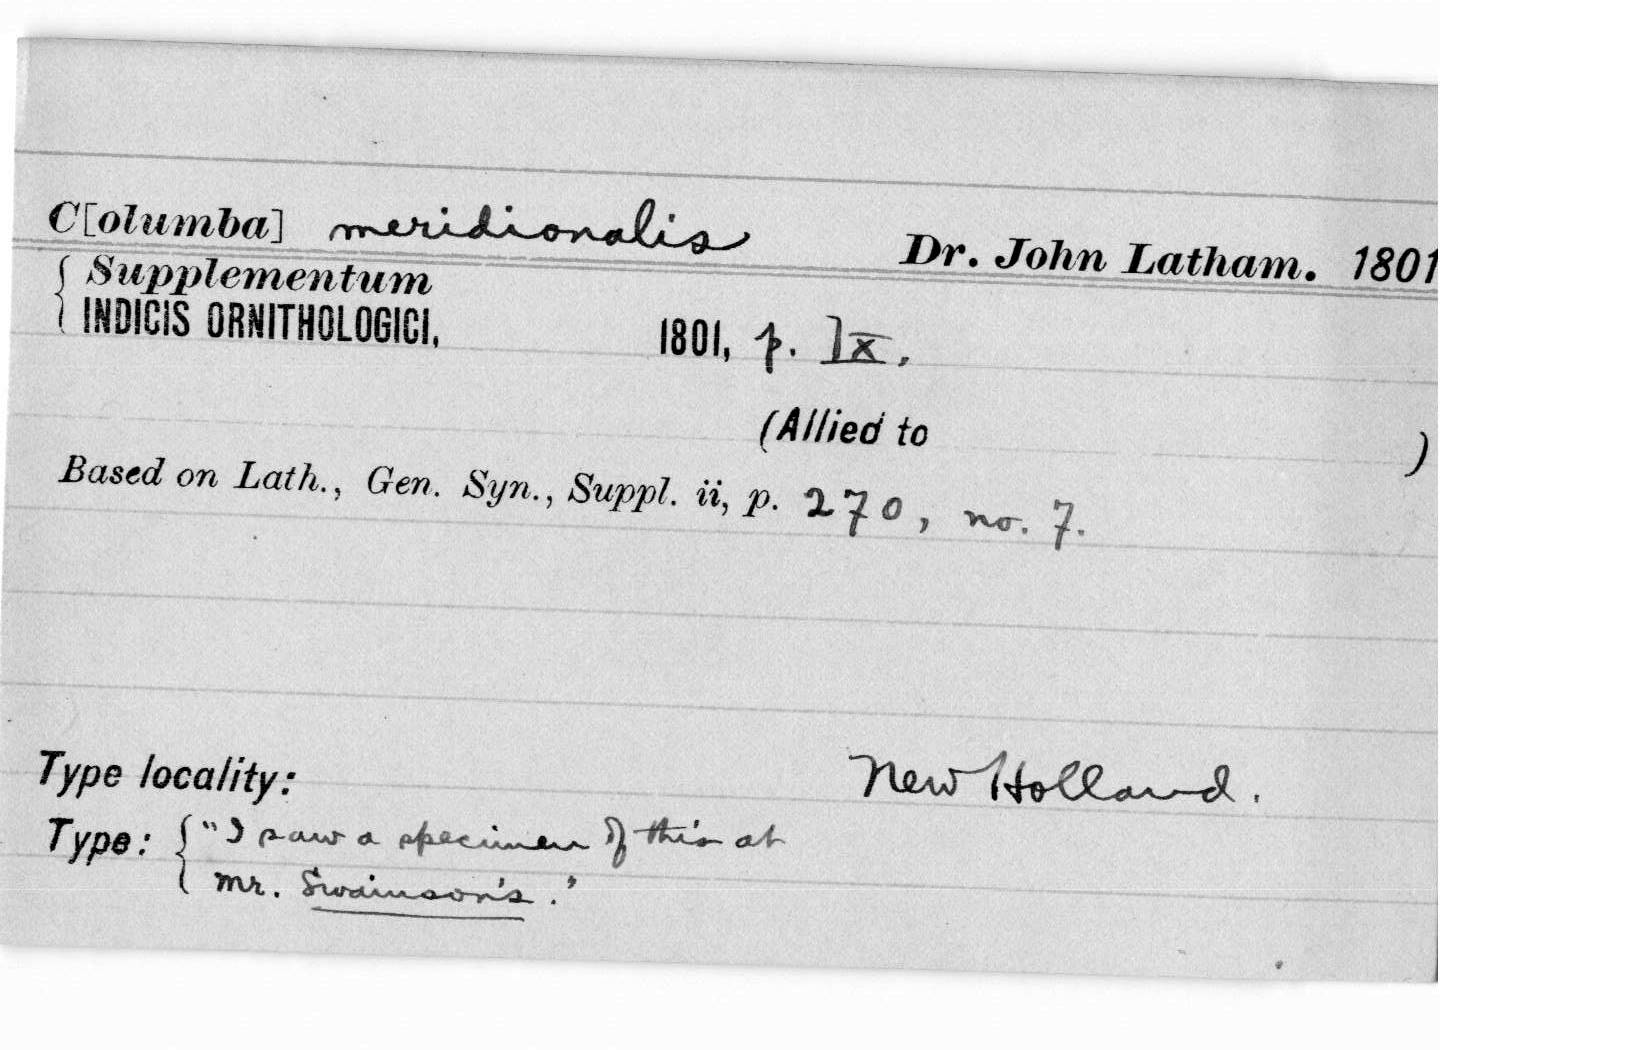 C[olumba] meridionalis Dr. John Latham. 1801
{ Supplementum
INDICIS ORNITHOLOGICI, 1801, p. lx.
(Allied to )
Based on Lath., Gen. Syn., Suppl. ii, p. 270, no. 7.
Type locality: New Holland.
Type: { "I saw a specimen of this at
Mr. Swainson's."